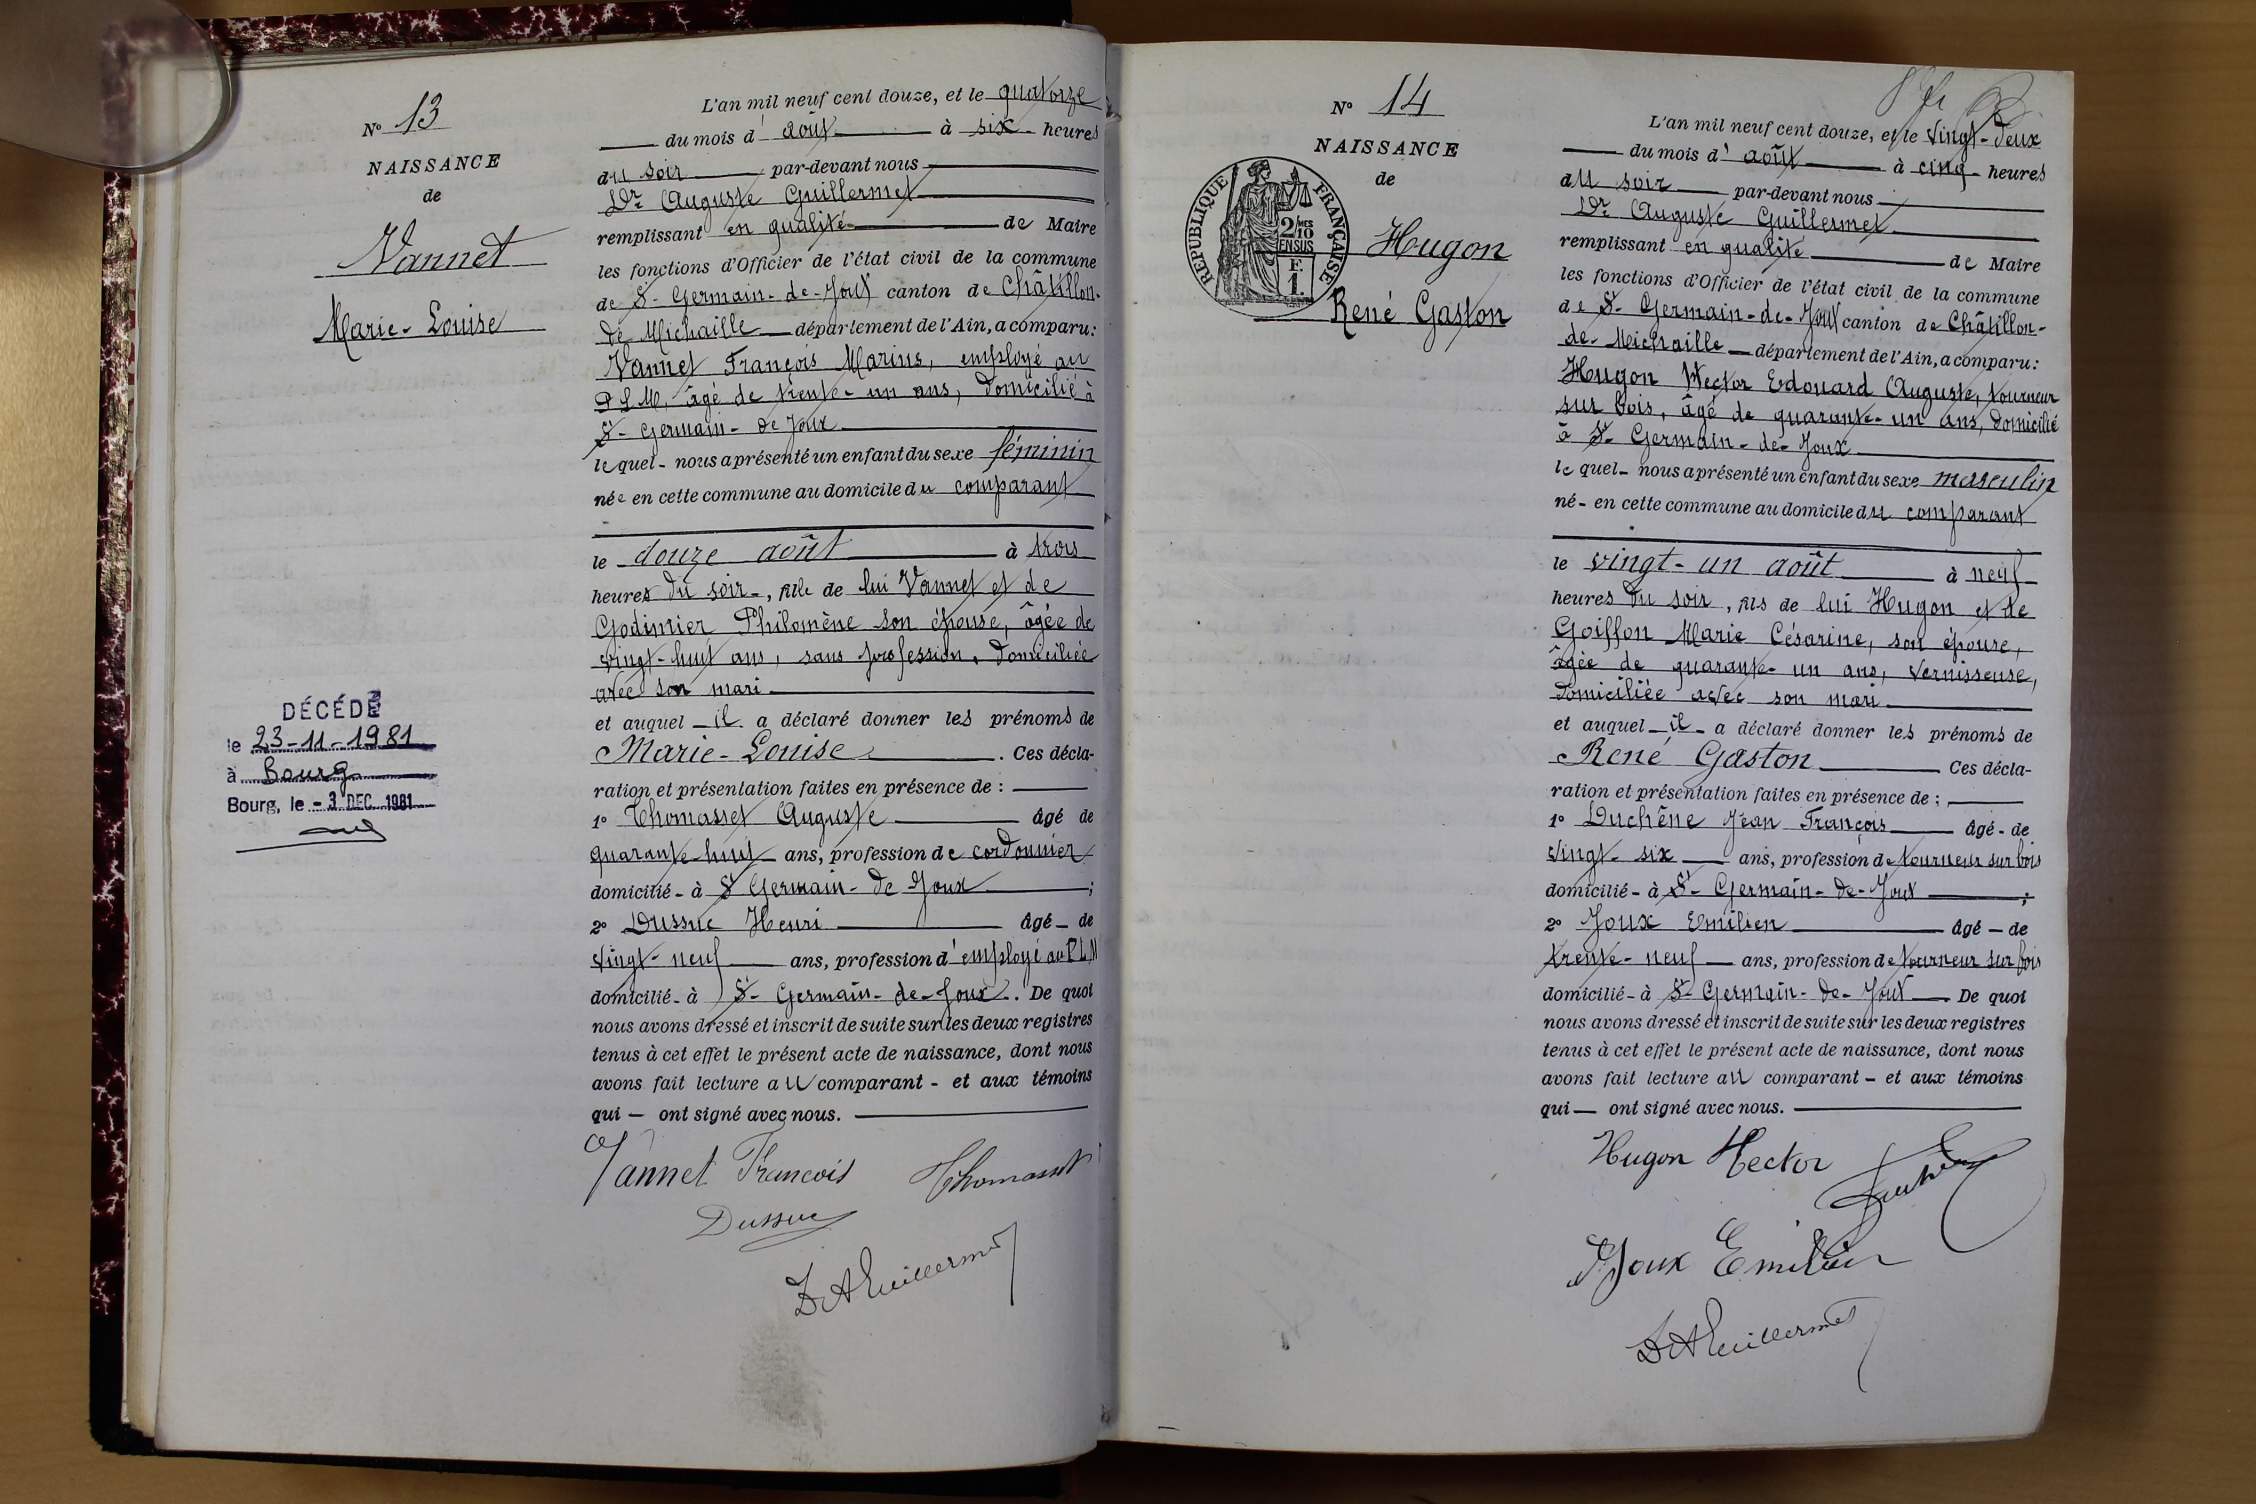 N° 13
NAISSANCE
de
Vannet
Marie-Louise
DÉCÉDÉE
le 23-11-1981
à Bourg
Bourg, le - 3 DEC. 1981
L'an mil neuf cent douze, et le quatorze
du mois d' août à six heures
du soir par-devant nous
Dr Auguste Guillermet
remplissant en qualité de Maire
les fonctions d'Officier de l'état civil de la commune
de St-Germain-de-Joux canton de Châtillon-
de Michaille département de l'Ain, a comparu:
Vannet François Marius, employé au
P L M, âgé de trente-un ans, domicilié à
St-Germain-de Joux
lequel- nous a présenté un enfant du sexe féminin
née en cette commune au domicile du comparant
le douze août à trois
heures du soir-, fille de lui Vannet et de
Godinier Philomène son épouse, âgée de
vingt-huit ans, sans profession, domiciliée
avec son mari
et auquel il a déclaré donner les prénoms de
Marie-Louise. Ces décla-
ration et présentation faites en présence de :
1° Thomasset Auguste âgé de
quarante-huit ans, profession de cordonnier
domicilié- à St Germain-de Joux ;
2° Dussuc Henri âgé- de
vingt-neuf ans, profession d'employé au P L M
domicilié-à St-Germain-de-Joux. De quoi
nous avons dressé et inscrit de suite sur les deux registres
tenus à cet effet le présent acte de naissance, dont nous
avons fait lecture au comparant - et aux témoins
qui — ont signé avec nous.
Vannet Francois Thomasset
Dussuc
Dr A Guillermet
N° 14
NAISSANCE
de
RÉPUBLIQUE FRANÇAISE
2/10MES
EN SUS
F.
1.
Hugon
René Gaston
L'an mil neuf cent douze, et le vingt-deux
du mois d' août à cinq heures
du soir par-devant nous
Dr Auguste Guillermet
remplissant en qualité de Maire
les fonctions d'Officier de l'état civil de la commune
de St-Germain-de-Joux canton de Châtillon-
de-Michaille département de l'Ain, a comparu:
Hugon Hector Edouard Auguste, tourneur
sur bois, âgé de quarante-un ans, domicilié
à St-Germain-de-Joux
lequel- nous a présenté un enfant du sexe masculin
né- en cette commune au domicile du comparant
le vingt-un août à neuf
heures du soir, fils de lui Hugon et de
Goiffon Marie Césarine, son épouse,
âgée de quarante-un ans, vernisseuse,
domiciliée avec son mari
et auquel il a déclaré donner les prénoms de
René Gaston Ces décla-
ration et présentation faites en présence de ;
1° Duchêne Jean François âgé- de
vingt-six ans, profession de tourneur sur bois
domicilié- à St-Germain-de-Joux ;
2° Joux Emilien âgé — de
trente-neuf ans, profession de tourneur sur bois
domicilié-à St-Germain-de-Joux De quoi
nous avons dressé et inscrit de suite sur les deux registres
tenus à cet effet le présent acte de naissance, dont nous
avons fait lecture au comparant - et aux témoins
qui — ont signé avec nous.
Hugon Hector
Joux Emilien
Dr A Guillermet